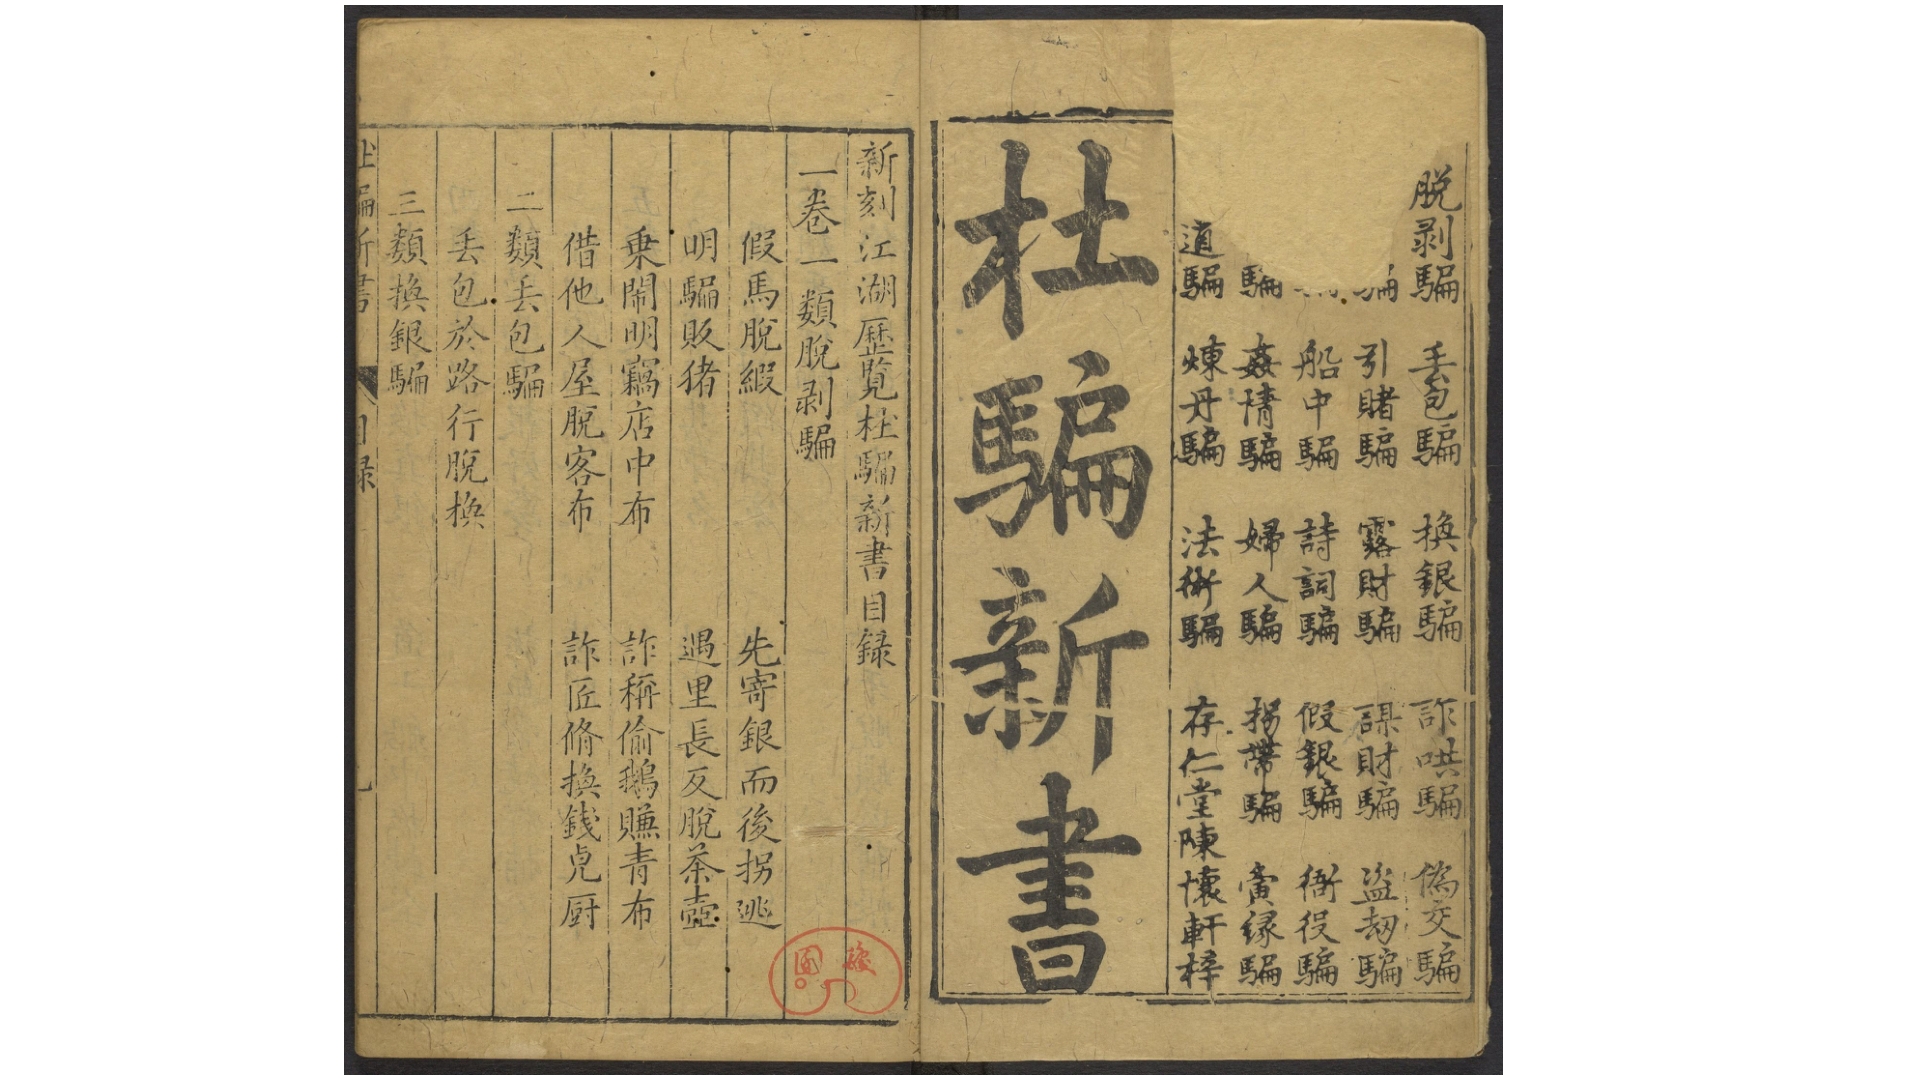 脫剥騙 丟包騙 換銀騙 詐哄騙 偽交騙
騙 引賭騙 露財騙 謀財騙 盜刼騙
船中騙 詩詞騙 假銀騙 衙役騙
騙 姦情騙 婦人騙 拐帶騙 夤緣騙
道騙 煉丹騙 法術騙 存仁堂陳懷軒梓
杜騙新書
新刻江湖歷覧杜騙新書目録
一卷一類脫剥騙
假馬脫緞 先寄銀而後拐逃
明騙販猪 遇里長反脫茶壺
乗閙明竊店中布 詐稱偷鵝賺青布
借他人屋脫客布 詐匠脩換錢皃厨
二類丟包騙
丟包於路行脫換
三類換銀騙